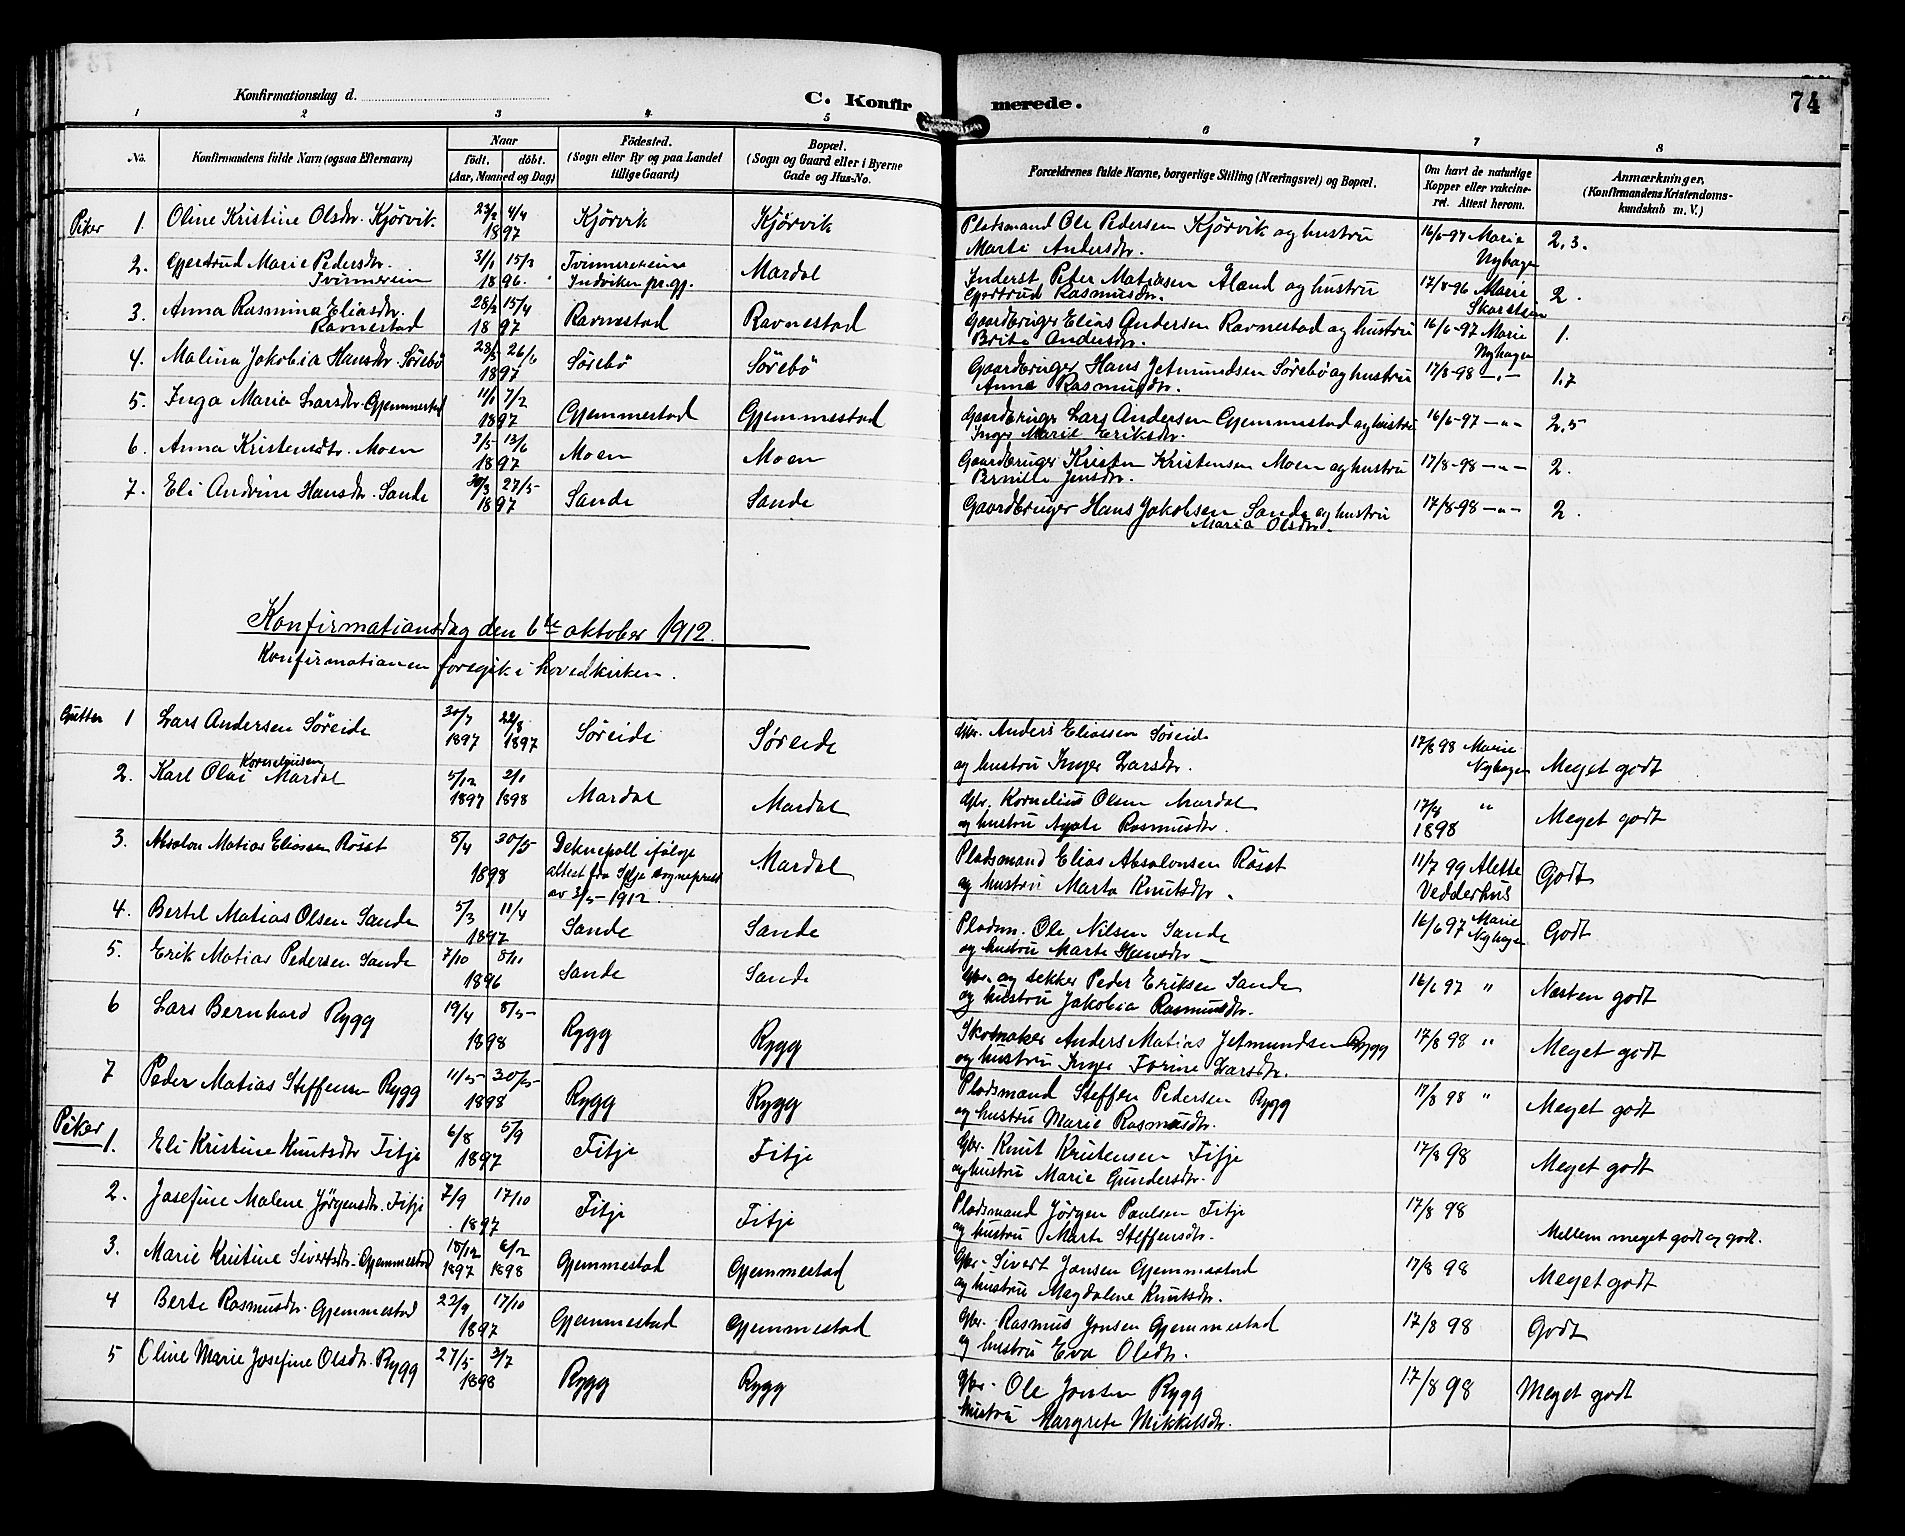 74
Konfirmationsdag d.
C. Konfir merede.
1 2 3 4 5 6 7 8
No. Konfirmandens fulde Navn (ogsaa Efternavn) Naar födt. döbt. (Aar, Maaned og Dag) Födested. (Sogn eller By og paa Landet tillige Gaard) Bopæl. (Sogn og Gaard eller i Byerne Gade og Hus-No. Forældrenes fulde Navne, borgerlige Stilling (Næringsvei) og Bopæl. Om havt de naturlige Kopper eller vakcineret. Attest herom. Anmærkninger, (Konfirmandens Kristendomskundskab m. V.)
Piker 1. Oline Kristine Olsdtr. Kjörvik 23/2 4/4 1897 Kjörvik Kjörvik Pladsmand Ole Pedersen Kjörvik og hustru Marte Andersdtr. 16/6-97 Marie Nyhagen 2,3.
2. Gjertrud Marie Pedersdtr. Tvinnereim 31/1 15/3 1896. Tvinnereim Indviken pr.gj. Mardal Inderst Peter Matiasen Aland og hustru Gjertrud Rasmusdtr. 17/8-96 Marie 2.
3. Anna Rasmina Eliasdtr. Ravnestad 28/2 15/4 1897 Ravnestad Ravnestad Gaardbruger Elias Andersen Ravnestad og hustru Brite Andersdtr. 16/6-97 Marie Nyhagen 1.
4. Malina Jakobia Hansdtr. Sörebö 28/5 26/6 1897 Sörebö Sörebö Gaardbruger Hans Jetmundsen Sörebö og hustru Anna Rasmusdtr. 17/8-98 -„- 1,7
5. Inga Maria Larsdtr. Gjemmestad 11/1 7/2 1897 Gjemmestad Gjemmestad Gaardbruger Lars Andersen Gjemmestad og hustru Inger Marie Eriksdtr. 16/6-97 -„- 2,5
6. Anna Kristensdtr. Moen 9/5 13/6 1897 Moen Moen Gaardbruger Kristen Kristensen Moen og hustru Bernille Jensdtr. 17/8-98 -„- 2.
7. Eli Andrine Hansdtr. Sande 30/3 27/5 1897 Sande Sande Gaardbruger Hans Jakobsen Sande og hustru Maria Olsdtr. 17/8-98 -„- 2.
Konfirmationsdag den 6te oktober 1912.
Konfirmationen foregik i hovedkirken.
Gutter 1 Lars Andersen Söreide 30/7 1897 22/8 1897 Söreide Söreide Gbr. Anders Eliassen Söreide og hustru Inger Larsdtr. 17/8 98 Marie Nyhagen Meget godt
2. Karl Olai Korneliusen Mardal 5/12 1897 2/1 1898 Mardal Mardal Gbr. Kornelius Olsen Mardal og hustru Agate Rasmusdtr. 17/8 1898 „ Meget godt
3. Absalon Matias Eliassen Rösst 8/4 30/5 1898 Deknepoll ifölge attest fra Selje sogneprest av 3/5-1912. Mardal Pladsmand Elias Absalonsen Rösst og hustru Marta Knutsdtr. 11/7 99 Alette Vedderhus Godt
4. Bertel Matias Olsen Sande 5/3 11/4 1897 Sande Sande Pladsm. Ole Nilsen Sande og hustru Marte Hansdtr. 16/6 97 Marie Nyhagen Godt
5. Erik Matias Pedersen Sande 7/10 8/11 1896 Sande Sande Gbr. og sekker Peder Eriksen Sande og hustru Jakobia Rasmusdtr. 16/6 97 „ Næsten godt
6 Lars Bernhard Rygg 19/4 8/5 1898 Rygg Rygg Skomaker Anders Matias Jetmundsen Rygg og hustru Inger Torine Larsdtr. 17/8 98 „ Meget godt
7 Peder Matias Steffensen Rygg 11/5 30/5 1898 Rygg Rygg Pladsmand Steffen Pedersen Rygg og hustru Marie Rasmusdtr. 17/8 98 „ Meget godt
Piker 1. Eli Kristine Knutsdtr Fitje 6/8 5/9 1897 Fitje Fitje Gbr. Knut Kristensen Fitje og hustru Marie Gundersdtr. 17/8 98 Meget godt
2. Josefine Malene Jörgensdtr. Fitje 7/9 17/10 1897 Fitje Fitje Pladsmand Jörgen Paulsen Fitje og hustru Marte Steffensdtr. 17/8 98 Mellem meget godt og godt.
3. Marie Kristine Sivertsdtr. Gjemmestad 18/12 1897 6/2 1898 Gjemmestad Gjemmestad Gbr. Sivert Jonsen Gjemmestad og hustru Magdalene Knutsdtr. 17/8 98 Meget godt
4 Berte Rasmusdtr. Gjemmestad 22/9 17/10 1897 Gjemmestad Gjemmestad Gbr. Rasmus Jonsen Gjemmestad og hustru Eva Olsdtr. 17/8 98 Godt
5 Oline Marie Josefine Olsdtr. Rygg 27/5 3/7 1898 Rygg Rygg Gbr. Ole Jonsen Rygg hustru Margrete Mikkelsdtr. 17/8 98 Meget godt